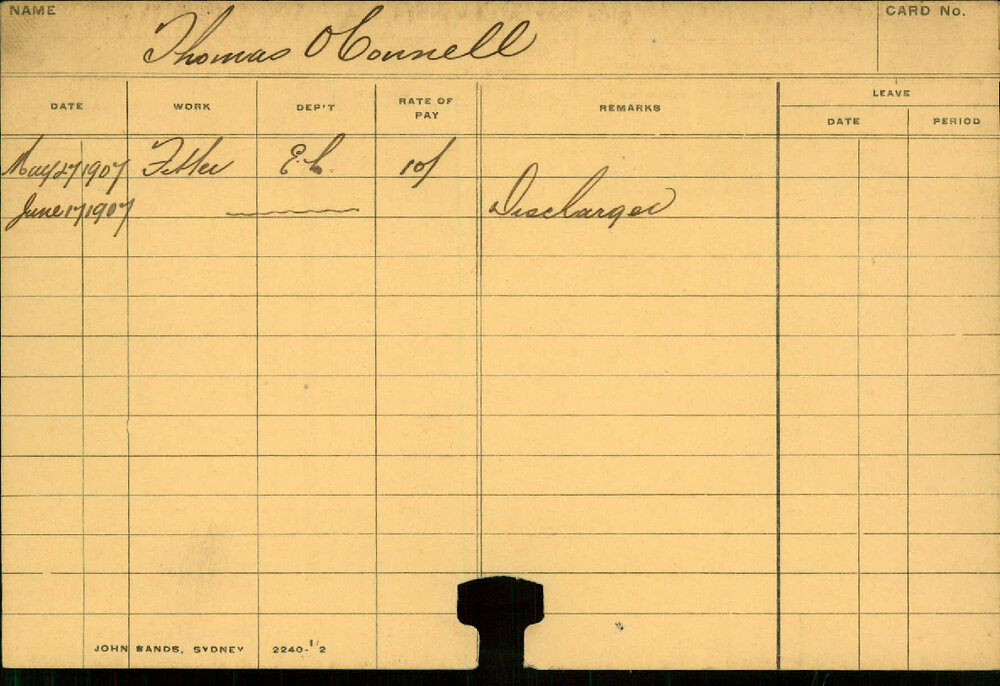 NAME Thomas O'Connell CARD No.
DATE WORK DEP'T RATE OF PAY REMARKS LEAVE
DATE PERIOD
May 27 1907 Fitter 10/
June 17 1907 Discharged
JOHN SANDS, SYDNEY 2240-1/2